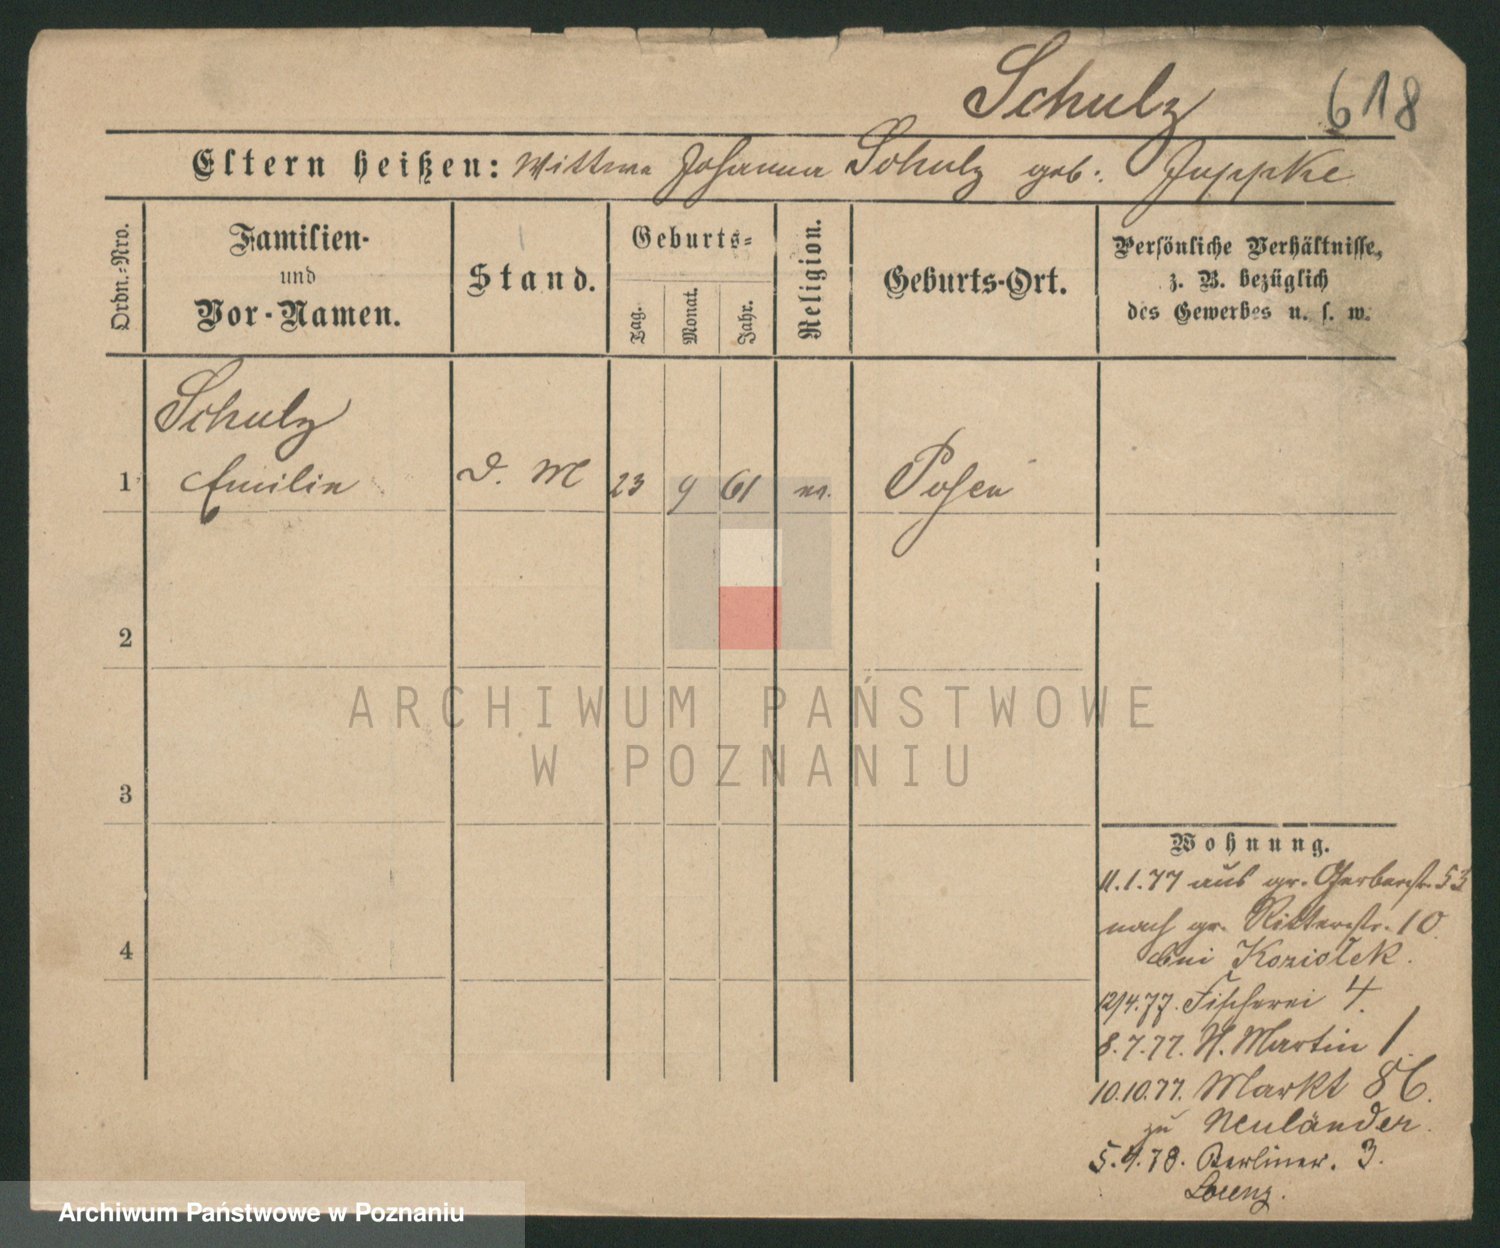 Schulz 618
Eltern heißen: Wittwe Johanna Schulz geb: Juppke
Ordn.-Nro.
Familien-
und
Vor-Namen.
Stand.
Geburts-
Tag.
Monat.
Jahr.
Religion.
Geburts-Ort.
Persönliche Verhältnisse,
z. B. bezüglich
des Gewerbes u. s. w.
Schulz
1 Emilie D. M 23 9 61 ev. Posen
2
3
4
ARCHIWUM PAŃSTWOWE
W POZNANIU
Wohnung.
11.1.77 aus gr. Gerberstr. 53
nach gr. Ritterstr. 10
bei Koziolek.
12/4.77. Fischerei 4.
8.7.77. St. Martin 1.
10.10.77. Markt 86.
zu Neuländer.
5.4.78. Berliner. 3.
Lorenz.
Archiwum Państwowe w Poznaniu